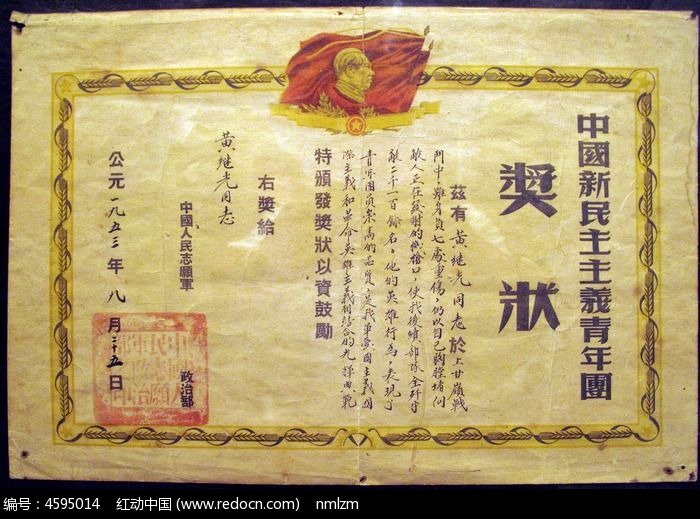 中國新民主主義青年團
獎狀
茲有黃继光同志於上甘嶺戰
鬥中,雖身負七處重傷,仍以自己胸膛堵向
敵人正在發射的機槍口,使我後續部隊全歼守
敵二千一百餘名。他的英雄行為,表現了
青年團員崇高的品質,是我軍愛國主義國
際主義和革命英雄主義相結合的光輝典範
特頒發獎狀以資鼓勵
右獎給
黃继光同志
中國人民志願軍
政治部
公元一九五三年八月二十五日
编号:4595014 红动中国 (www.redocn.com) nmlzm